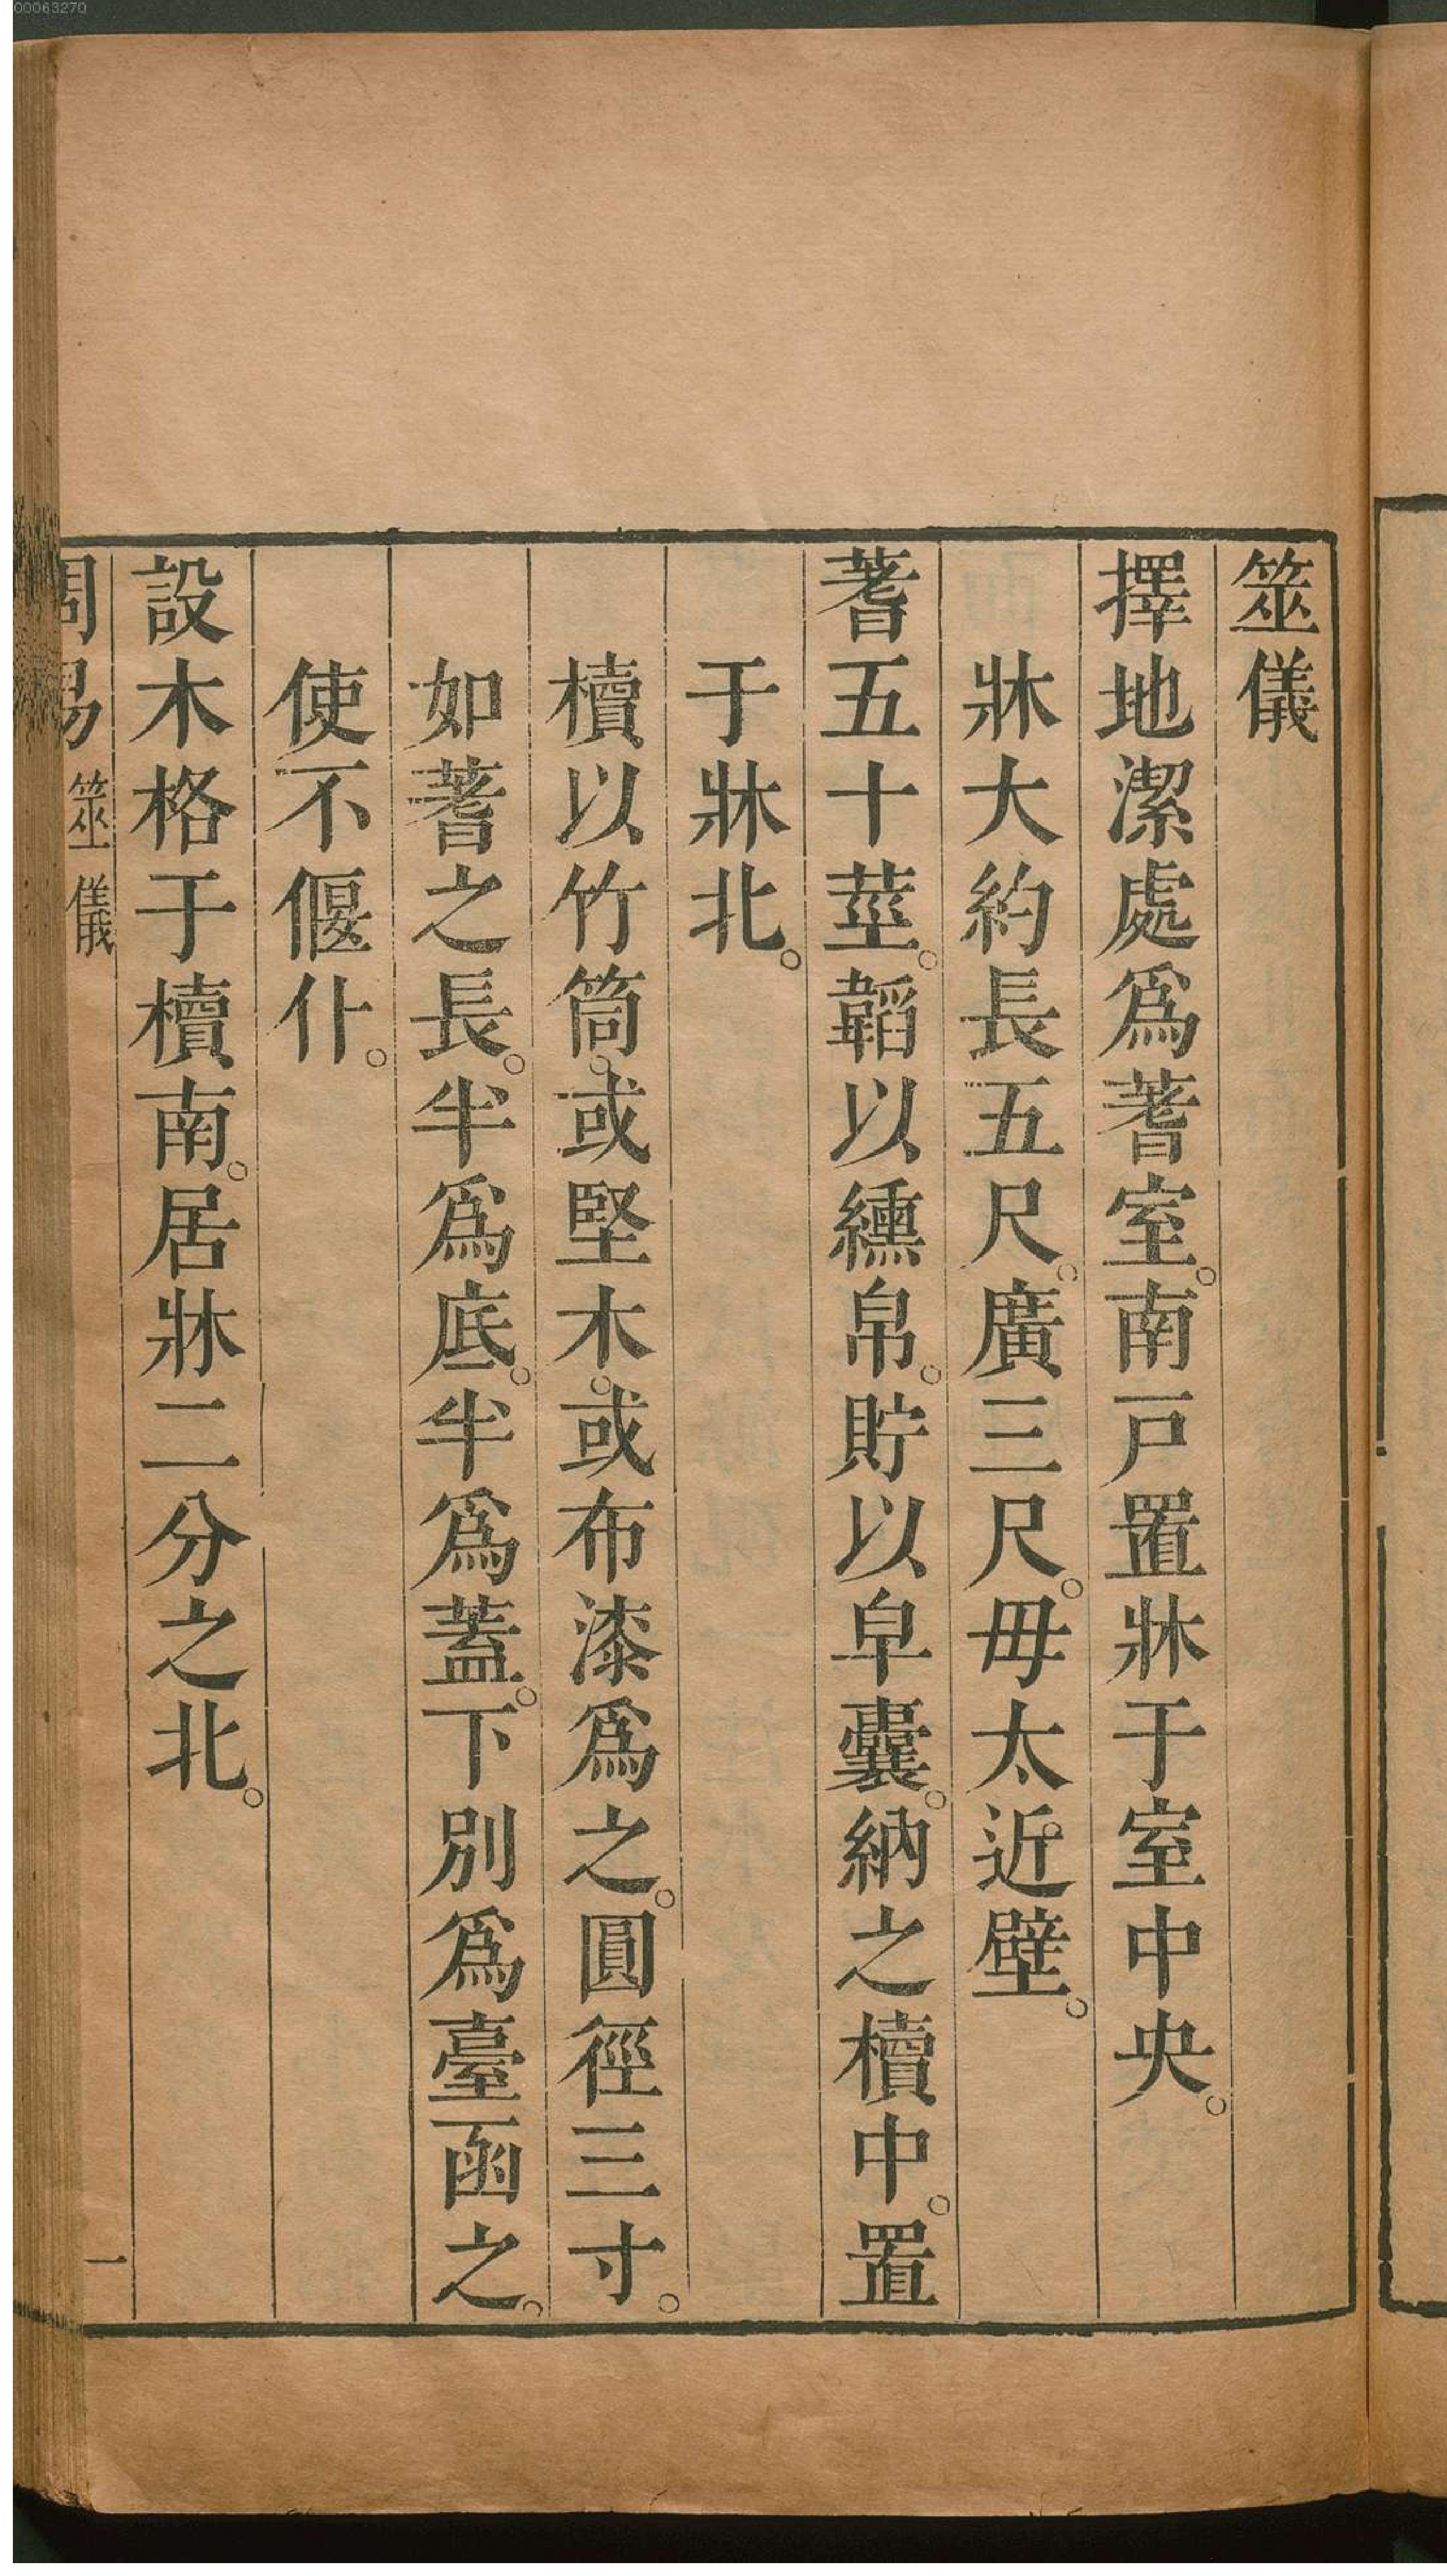 00063270
筮儀
擇地潔處爲蓍室。南戸置牀于室中央。
牀大約長五尺。廣三尺。毋太近壁。
蓍五十莖。韜以纁帛。貯以皁囊。納之櫝中。置
于牀北。
櫝以竹筒。或堅木。或布漆爲之。圓徑三寸。
如蓍之長。半爲底。半爲蓋。下別爲臺函之。
使不偃仆。
設木格于櫝南。居牀二分之北。
周易 筮儀 一